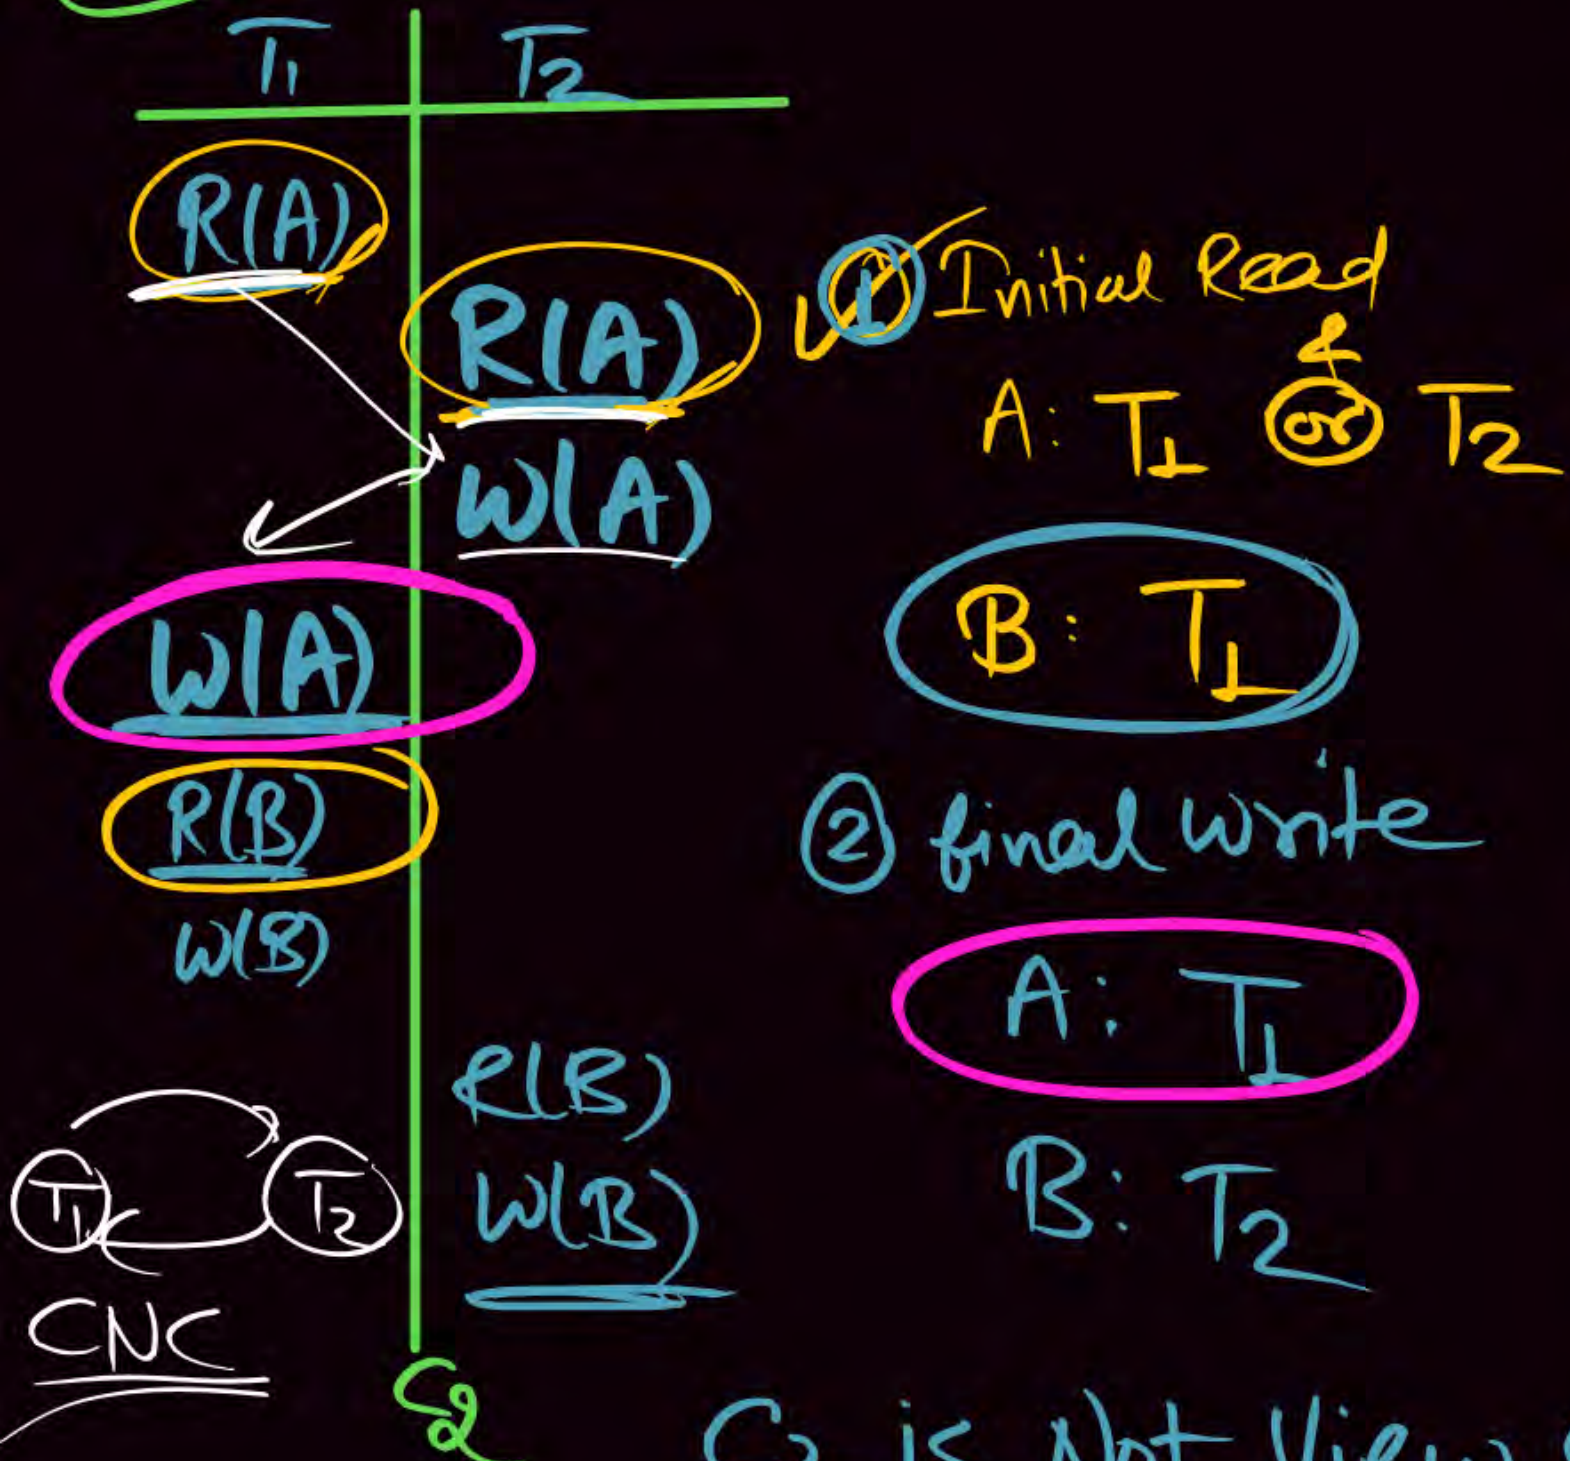 T1 T2
R(A)
R(A)
W(A)
W(A)
R(B)
W(B)
R(B)
W(B)
T1 T2
CNC
1 Initial Read
&
A: T1 or T2
B: T1
2 final write
A: T1
B: T2
is Not View